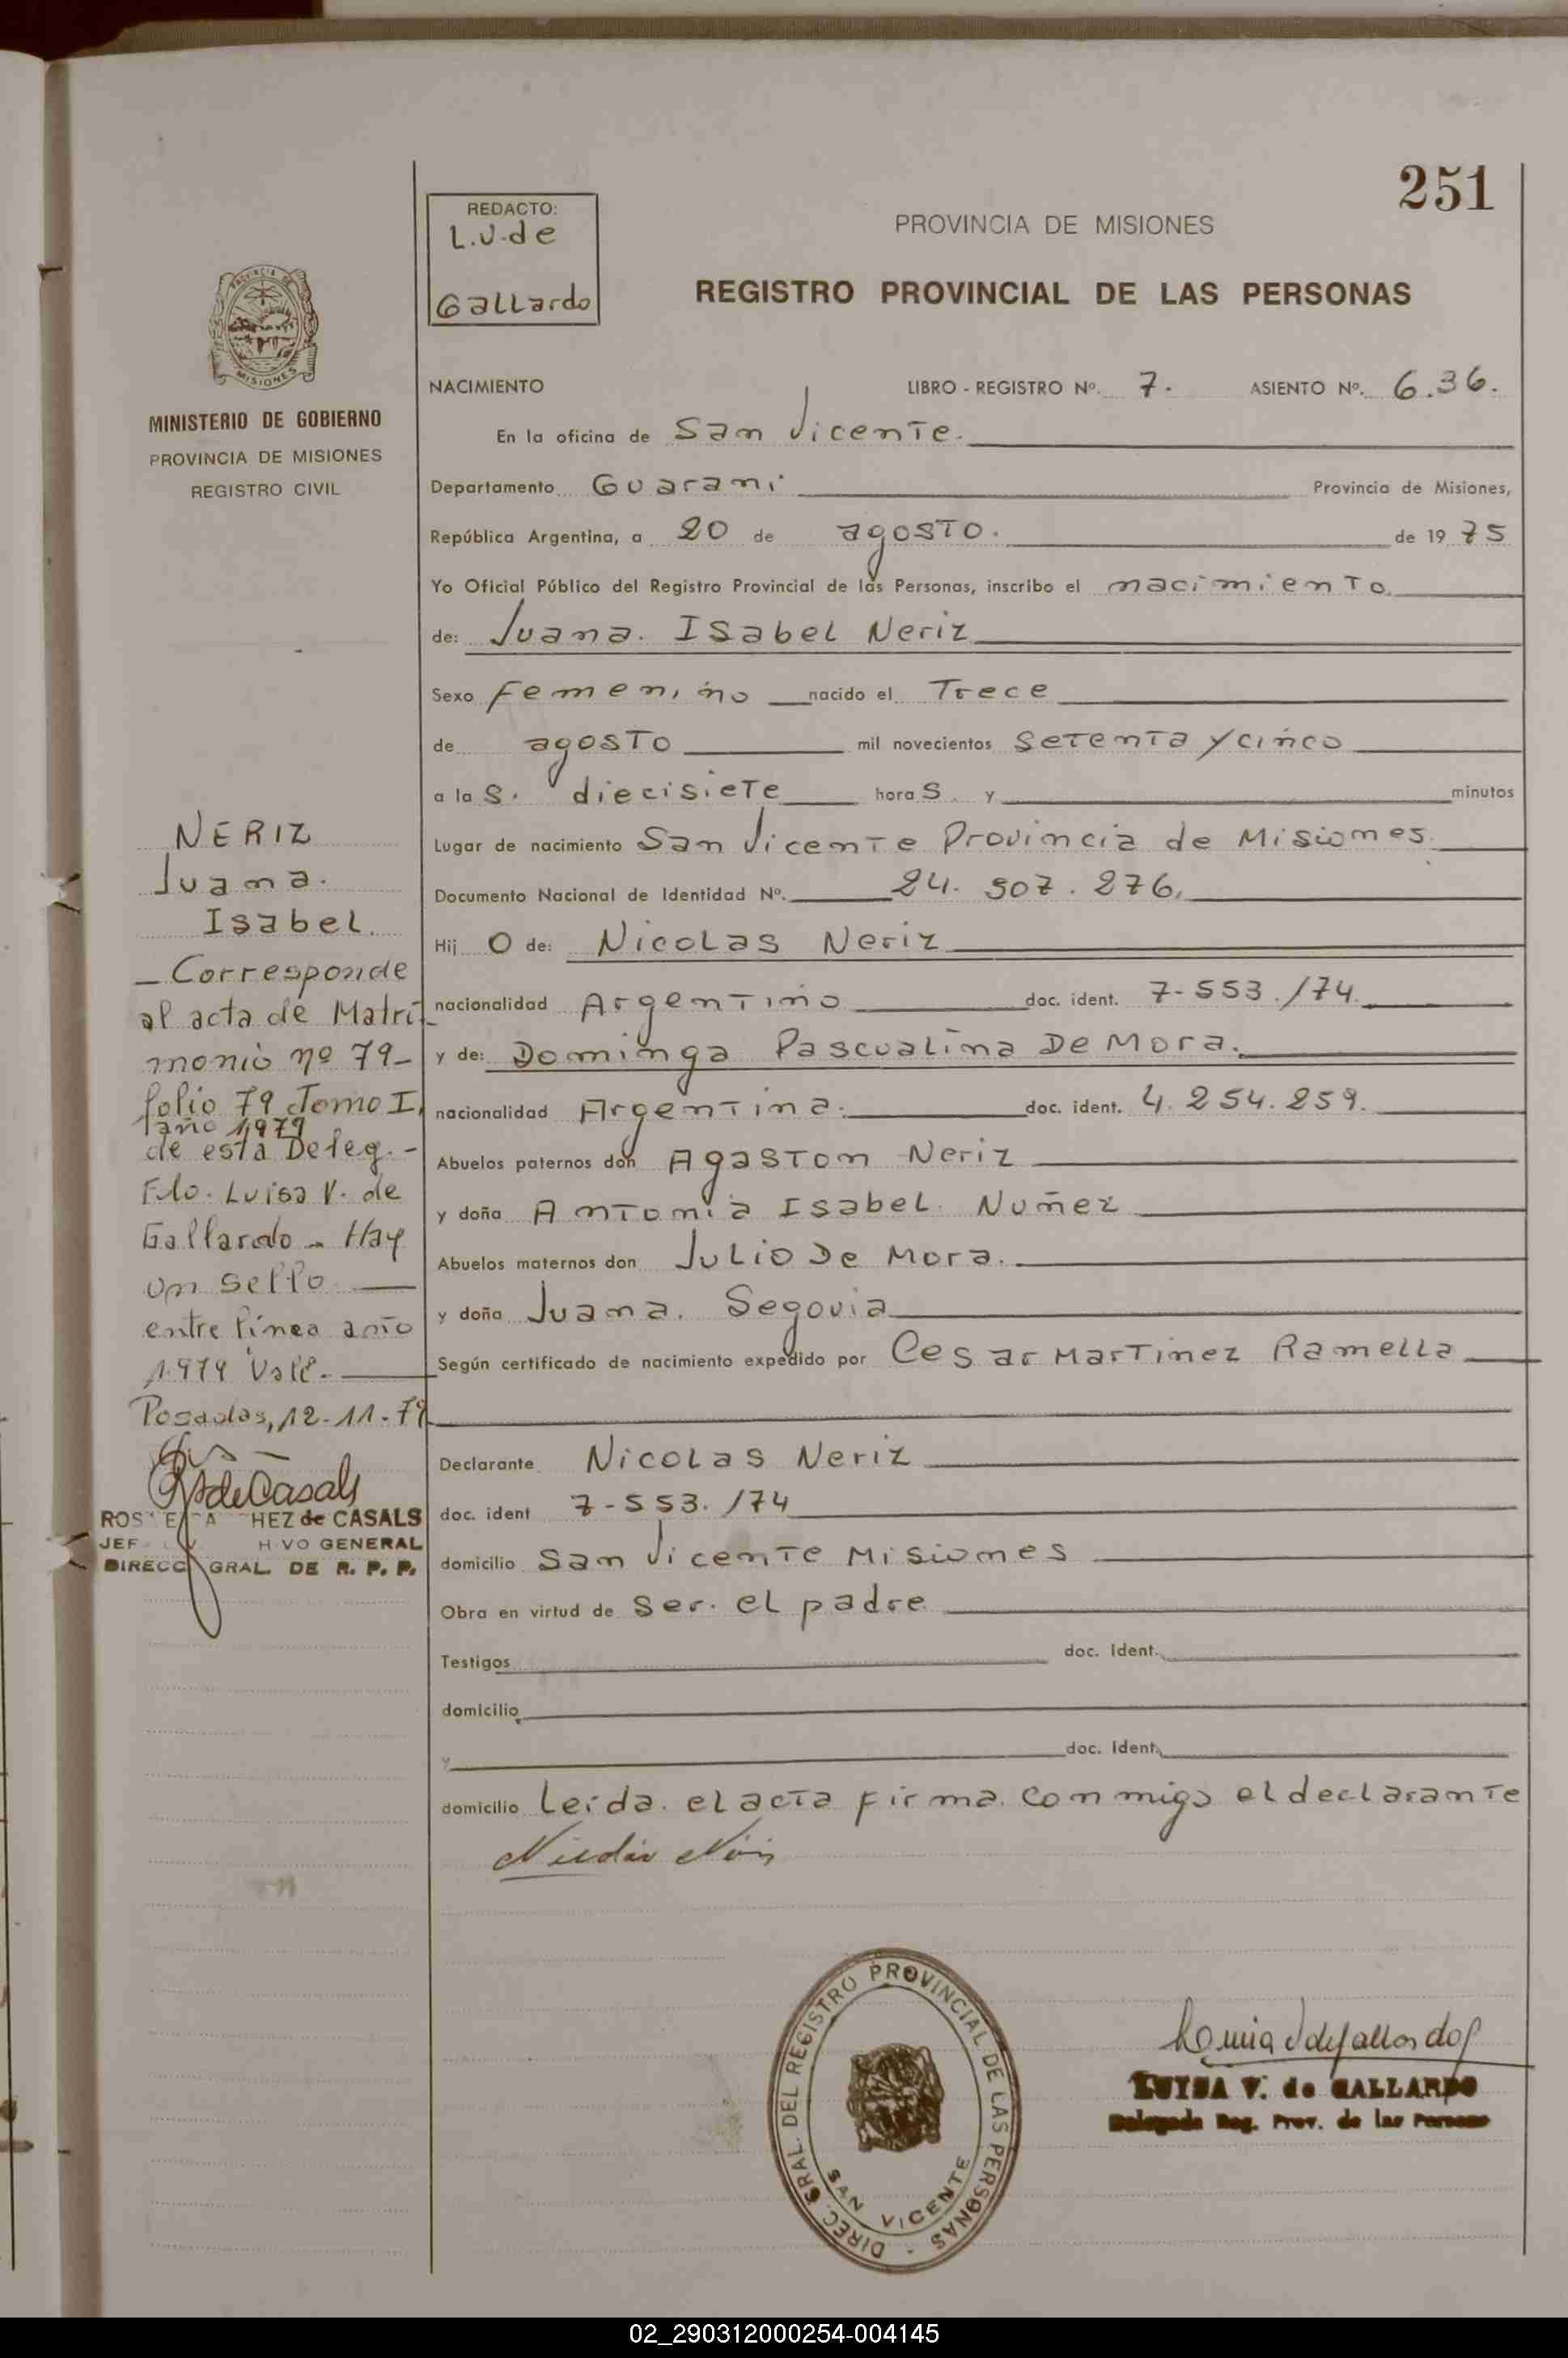 251
REDACTO:
L.V.de
Gallardo
PROVINCIA DE MISIONES
REGISTRO PROVINCIAL DE LAS PERSONAS
MISIONES
MINISTERIO DE GOBIERNO
PROVINCIA DE MISIONES
REGISTRO CIVIL
NACIMIENTO LIBRO - REGISTRO Nº. 7. ASIENTO Nº. 6.36.
En la oficina de San Vicente.
Departamento Guarani Provincia de Misiones,
República Argentina, a 20 de agosto. de 1975
Yo Oficial Público del Registro Provincial de las Personas, inscribo el nacimiento
de: Juana. Isabel Neriz
Sexo Femenino nacido el Trece
de agosto mil novecientos setenta y cinco
a las. diecisiete horas y minutos
Lugar de nacimiento San Vicente Provincia de Misiones
Documento Nacional de Identidad Nº. 24.507.276.
Hijo de: Nicolas Neriz
nacionalidad Argentino doc. ident. 7-553./74.
y de: Dominga Pascualina De Mora.
nacionalidad Argentina. doc. ident. 4.254.259.
Abuelos paternos don Agaston Neriz
y doña Antonia Isabel. Nuñez
Abuelos maternos don Julio De Mora.
y doña Juana. Segovia
Según certificado de nacimiento expedido por Cesar Martinez Ramella
Declarante Nicolas Neriz
doc. ident 7-553./74
domicilio San Vicente Misiones
Obra en virtud de ser. el padre
Testigos doc. ident.
domicilio
y doc. ident.
domicilio Leida. el acta firma. conmigo el declarante
NERIZ
Juana.
Isabel.
_ Corresponde
al acta de Matri_
monio nº 79_
folio 79 Tomo I,
año 1979
de esta Deleg.-
Fdo. Luisa V. de
Gallardo - Hay
un sello.
entre línea año
1.979 Vale.
Posadas, 12-11-79
de Casals
HEZ de CASALS
VO GENERAL
GRAL. DE R. P. P.
DIREC. GRAL. DEL REGISTRO PROVINCIAL DE LAS PERSONAS -
SAN VICENTE
LUISA V. de GALLARDO
Delegada Reg. Prov. de las Personas
02_290312000254-004145